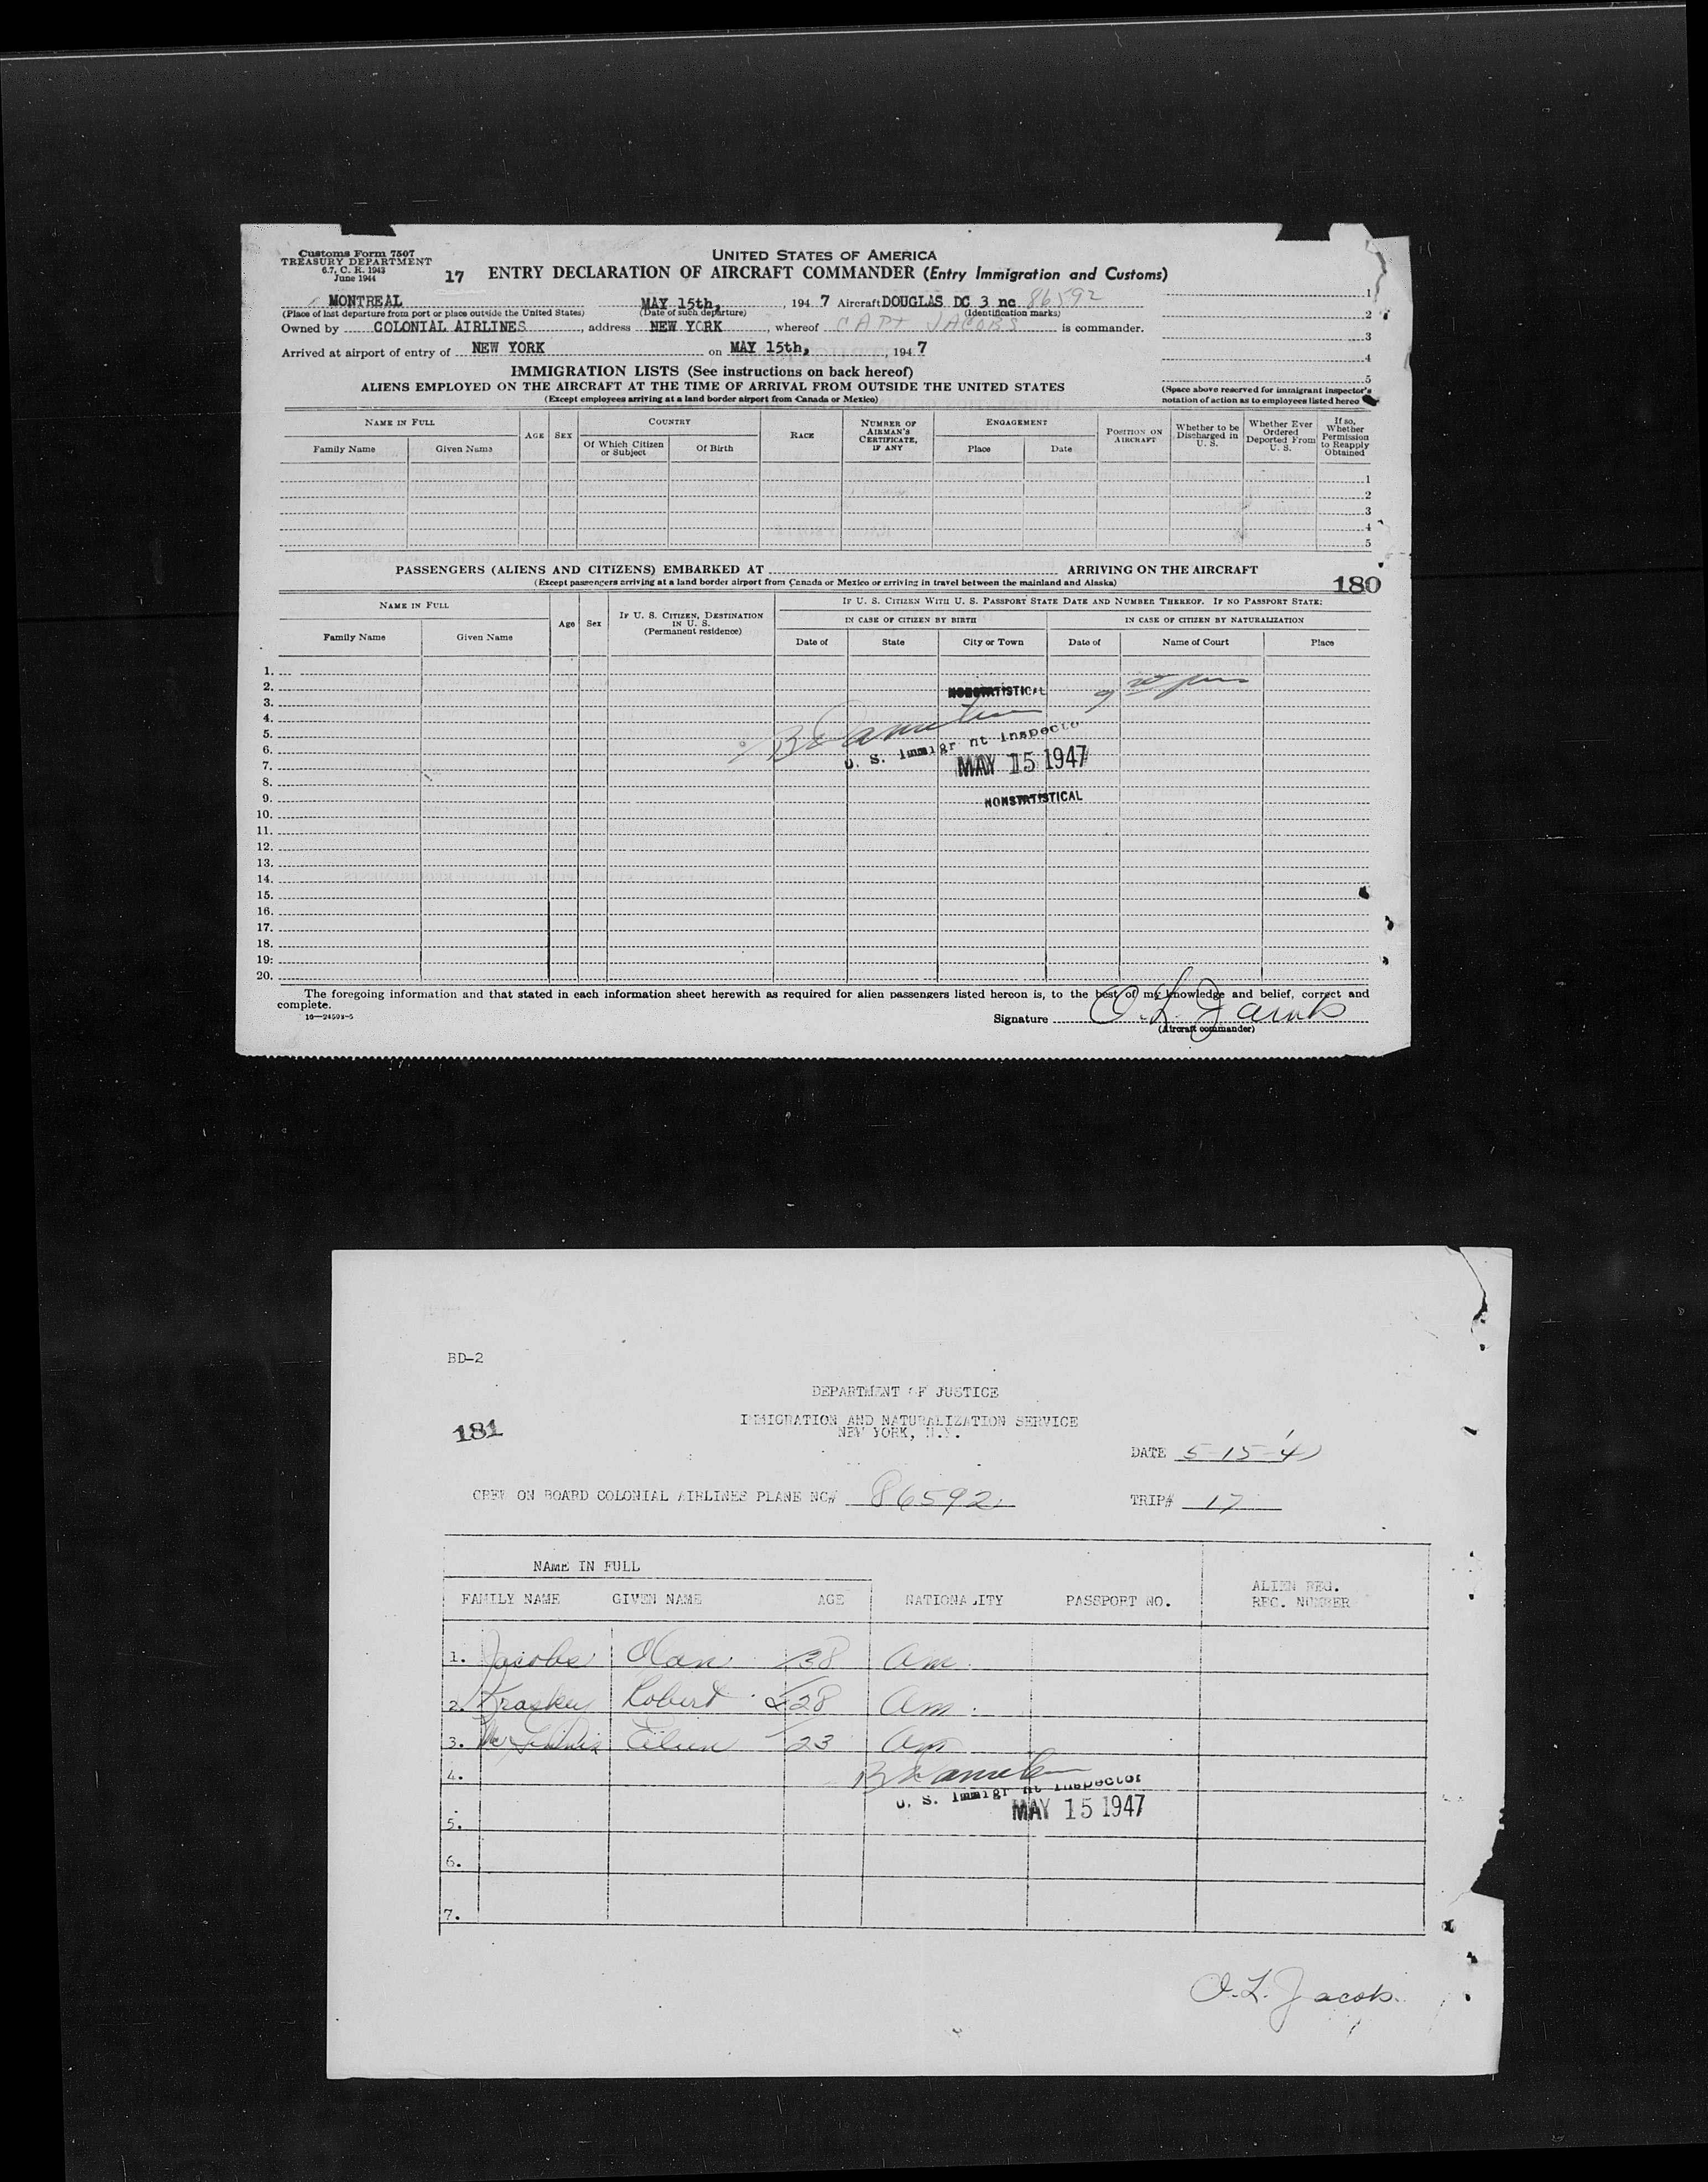 Customs Form 7507
TREASURY DEPARTMENT
6.7, C. R. 1943
June 1944
17
UNITED STATES OF AMERICA
ENTRY DECLARATION OF AIRCRAFT COMMANDER (Entry Immigration and Customs)
MONTREAL MAY 15th, , 194 7 Aircraft DOUGLAS DC 3 nc 86592
(Place of last departure from port or place outside the United States) (Date of such departure) (Identification marks)
Owned by COLONIAL AIRLINES , address NEW YORK , whereof CAPT JACOBS is commander.
Arrived at airport of entry of NEW YORK on MAY 15th, , 194 7
1
2
3
4
5
(Space above reserved for immigrant inspector's
notation of action as to employees listed hereo
IMMIGRATION LISTS (See instructions on back hereof)
ALIENS EMPLOYED ON THE AIRCRAFT AT THE TIME OF ARRIVAL FROM OUTSIDE THE UNITED STATES
(Except employees arriving at a land border airport from Canada or Mexico)
NAME IN FULL
Family Name Given Name
AGE SEX
COUNTRY
Of Which Citizen or Subject Of Birth
RACE
NUMBER OF AIRMAN'S CERTIFICATE, IF ANY
ENGAGEMENT
Place Date
POSITION ON AIRCRAFT
Whether to be Discharged in U. S.
Whether Ever Ordered Deported From U. S.
If so, Whether Permission to Reapply Obtained
1
2
3
4
5
PASSENGERS (ALIENS AND CITIZENS) EMBARKED AT ARRIVING ON THE AIRCRAFT
(Except passengers arriving at a land border airport from Canada or Mexico or arriving in travel between the mainland and Alaska)
180
NAME IN FULL
Family Name Given Name
Age Sex
IF U. S. CITIZEN, DESTINATION IN U. S.
(Permanent residence)
IF U. S. CITIZEN WITH U. S. PASSPORT STATE DATE AND NUMBER THEREOF. IF NO PASSPORT STATE:
IN CASE OF CITIZEN BY BIRTH IN CASE OF CITIZEN BY NATURALIZATION
Date of State City or Town Date of Name of Court Place
1.
2.
3.
4.
5.
6.
7.
8.
9.
10.
11.
12.
13.
14.
15.
16.
17.
18.
19.
20.
NONSTATISTICAL
U. S. Immigr nt Inspecto
MAY 15 1947
NONSTATISTICAL
The foregoing information and that stated in each information sheet herewith as required for alien passengers listed hereon is, to the best of my knowledge and belief, correct and
complete.
16—24592-5
Signature O. L. Jacobs
(Aircraft commander)
BD-2
DEPARTMENT OF JUSTICE
181
IMMIGRATION AND NATURALIZATION SERVICE
NEW YORK, N.Y.
DATE 5-15-47
CREW ON BOARD COLONIAL AIRLINES PLANE NC# 86592
TRIP# 17
NAME IN FULL
FAMILY NAME GIVEN NAME AGE NATIONALITY PASSPORT NO. ALIEN REG. REC. NUMBER
1. Jacobs Olan 38 Am.
2. Robert 28 Am.
3. 23 Am
4.
U. S. Immigr nt Inspector
MAY 15 1947
5.
6.
7.
O. L. Jacobs